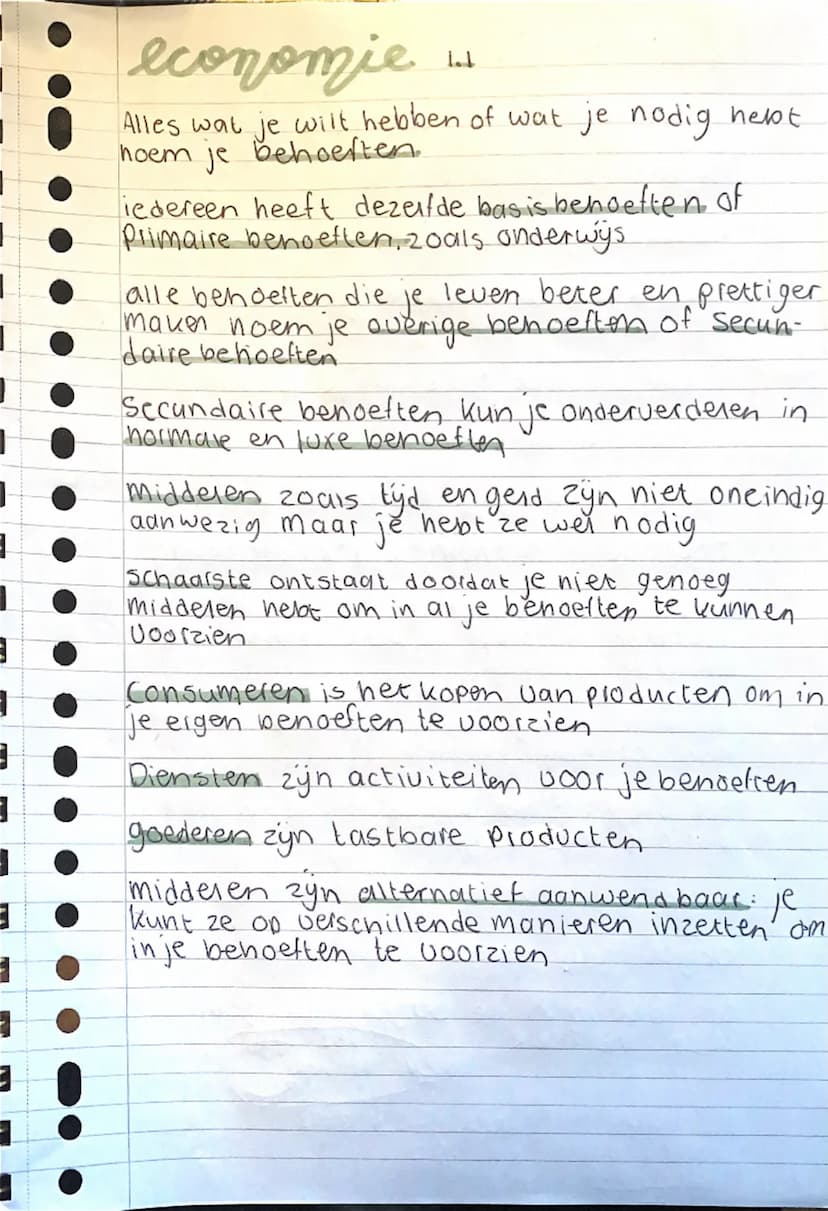 economie 1.1
Alles wat je wilt hebben of wat je nodig hebt
noem je behoeften.
iedereen heeft dezelfde basisbehoeften of
Primaire behoeften, zoals onderwijs
alle behoeften die je leven beter en prettiger
maken noem je overige behoeften of secun-
daire behoeften
Secundaire behoeften kun je onderverdelen in
normale en luxe behoeften
middelen zoals tijd en geld zijn niet oneindig
aanwezig maar je hebt ze wel nodig
schaarste ontstaat doordat je niet genoeg
middelen hebt om in al je behoeften te kunnen
voorzien
Consumeren is het kopen van producten om in
je eigen behoeften te voorzien
Diensten zijn activiteiten voor je behoeften
goederen zijn tastbare Producten
middelen zijn alternatief aanwendbaar: je
kunt ze op verschillende manieren inzetten om
in je behoeften te voorzien